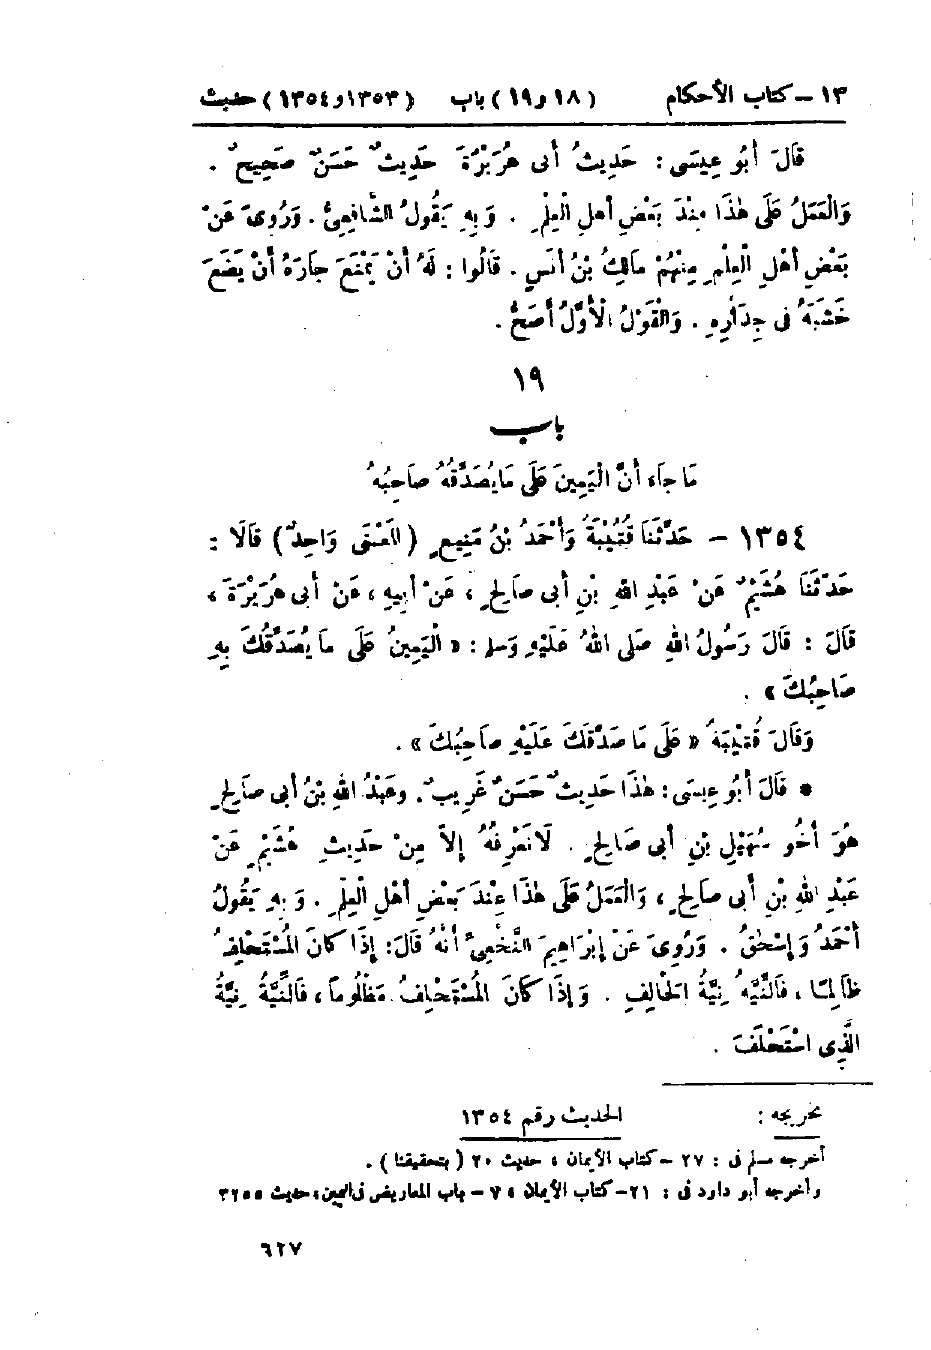 ١٣ – كتاب الأحكام (١٨ و ١٩) باب (١٣٥٣ و ١٣٥٤) حديث
قَالَ أَبُو عِيسَى : حَدِيثُ أَبِى هُرَيْرَةَ حَدِيثٌ حَسَنٌ صَحِيحٌ .
وَالْعَمَلُ عَلَى هٰذَا عِنْدَ بَعْضِ أَهْلِ الْعِلْمِ . وَبِهِ يَقُولُ الشَّافِعِىُّ . وَرُوِىَ عَنْ
بَعْضِ أَهْلِ الْعِلْمِ مِنْهُمْ مَالِكُ بْنُ أَنَسٍ . قَالُوا : لَهُ أَنْ يَمْنَعَ جَارَهُ أَنْ يَضَعَ
خَشَبَهُ فِى جِدَارِهِ . وَالْقَوْلُ الْأَوَّلُ أَصَحُّ .
١٩
باب
مَا جَاءَ أَنَّ الْيَمِينَ عَلَى مَا يُصَدِّقُهُ صَاحِبُهُ
١٣٥٤ – حَدَّثَنَا قُتَيْبَةُ وَأَحْمَدُ بْنُ مَنِيعٍ (الْمَعْنَى وَاحِدٌ) قَالَا :
حَدَّثَنَا هُشَيْمٌ عَنْ عَبْدِ اللهِ بْنِ أَبِى صَالِحٍ ، عَنْ أَبِيهِ ، عَنْ أَبِى هُرَيْرَةَ ،
قَالَ : قَالَ رَسُولُ اللهِ صَلَّى اللهُ عَلَيْهِ وَسَلَّمَ : « الْيَمِينُ عَلَى مَا يُصَدِّقُكَ بِهِ
صَاحِبُكَ » .
وَقَالَ قُتَيْبَةُ « عَلَى مَا صَدَّقَكَ عَلَيْهِ صَاحِبُكَ » .
* قَالَ أَبُو عِيسَى : هٰذَا حَدِيثٌ حَسَنٌ غَرِيبٌ . وَعَبْدُ اللهِ بْنُ أَبِى صَالِحٍ
هُوَ أَخُو سُهَيْلِ بْنِ أَبِى صَالِحٍ . لَا نَعْرِفُهُ إِلَّا مِنْ حَدِيثِ هُشَيْمٍ عَنْ
عَبْدِ اللهِ بْنِ أَبِى صَالِحٍ ، وَالْعَمَلُ عَلَى هٰذَا عِنْدَ بَعْضِ أَهْلِ الْعِلْمِ . وَبِهِ يَقُولُ
أَحْمَدُ وَإِسْحٰقُ . وَرُوِىَ عَنْ إِبْرَاهِيمَ النَّخَعِىِّ أَنَّهُ قَالَ : إِذَا كَانَ الْمُسْتَحْلِفُ
ظَالِمًا ، فَالنِّيَّةُ نِيَّةُ الْحَالِفِ . وَإِذَا كَانَ الْمُسْتَحْلِفُ مَظْلُومًا ، فَالنِّيَّةُ نِيَّةُ
الَّذِى اسْتَحْلَفَ .
تخريجه : الحديث رقم ١٣٥٤
أخرجه مسلم فى : ٢٧ – كتاب الأيمان ، حديث ٢٠ ( بتحقيقنا ) .
وأخرجه أبو داود فى : ٢١ – كتاب الأيمان ، ٧ – باب المعاريض فى اليمين ، حديث ٣٢٥٥
٦٢٧